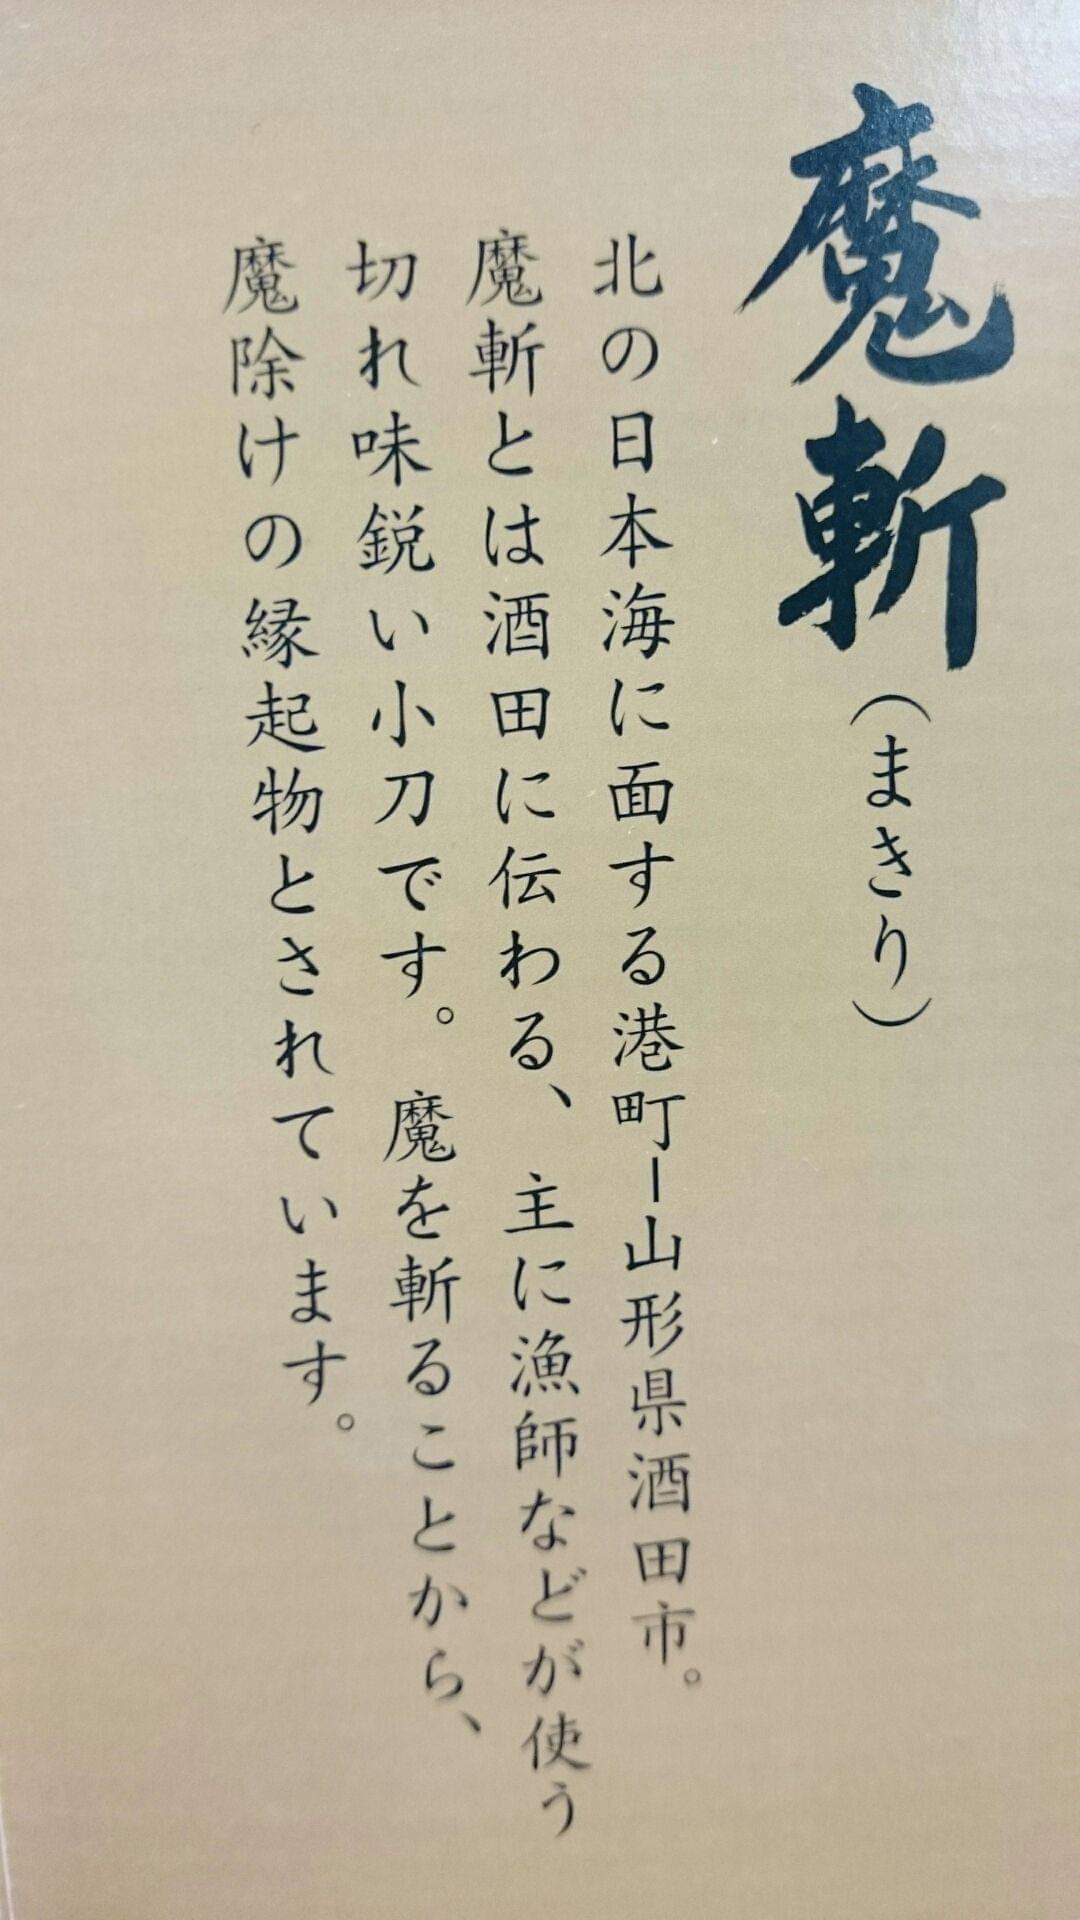 魔斬(まきり)
北の日本海に面する港町ー山形県酒田市。
魔斬とは酒田に伝わる、主に漁師などが使う
切れ味鋭い小刀です。魔を斬ることから、
魔除けの縁起物とされています。